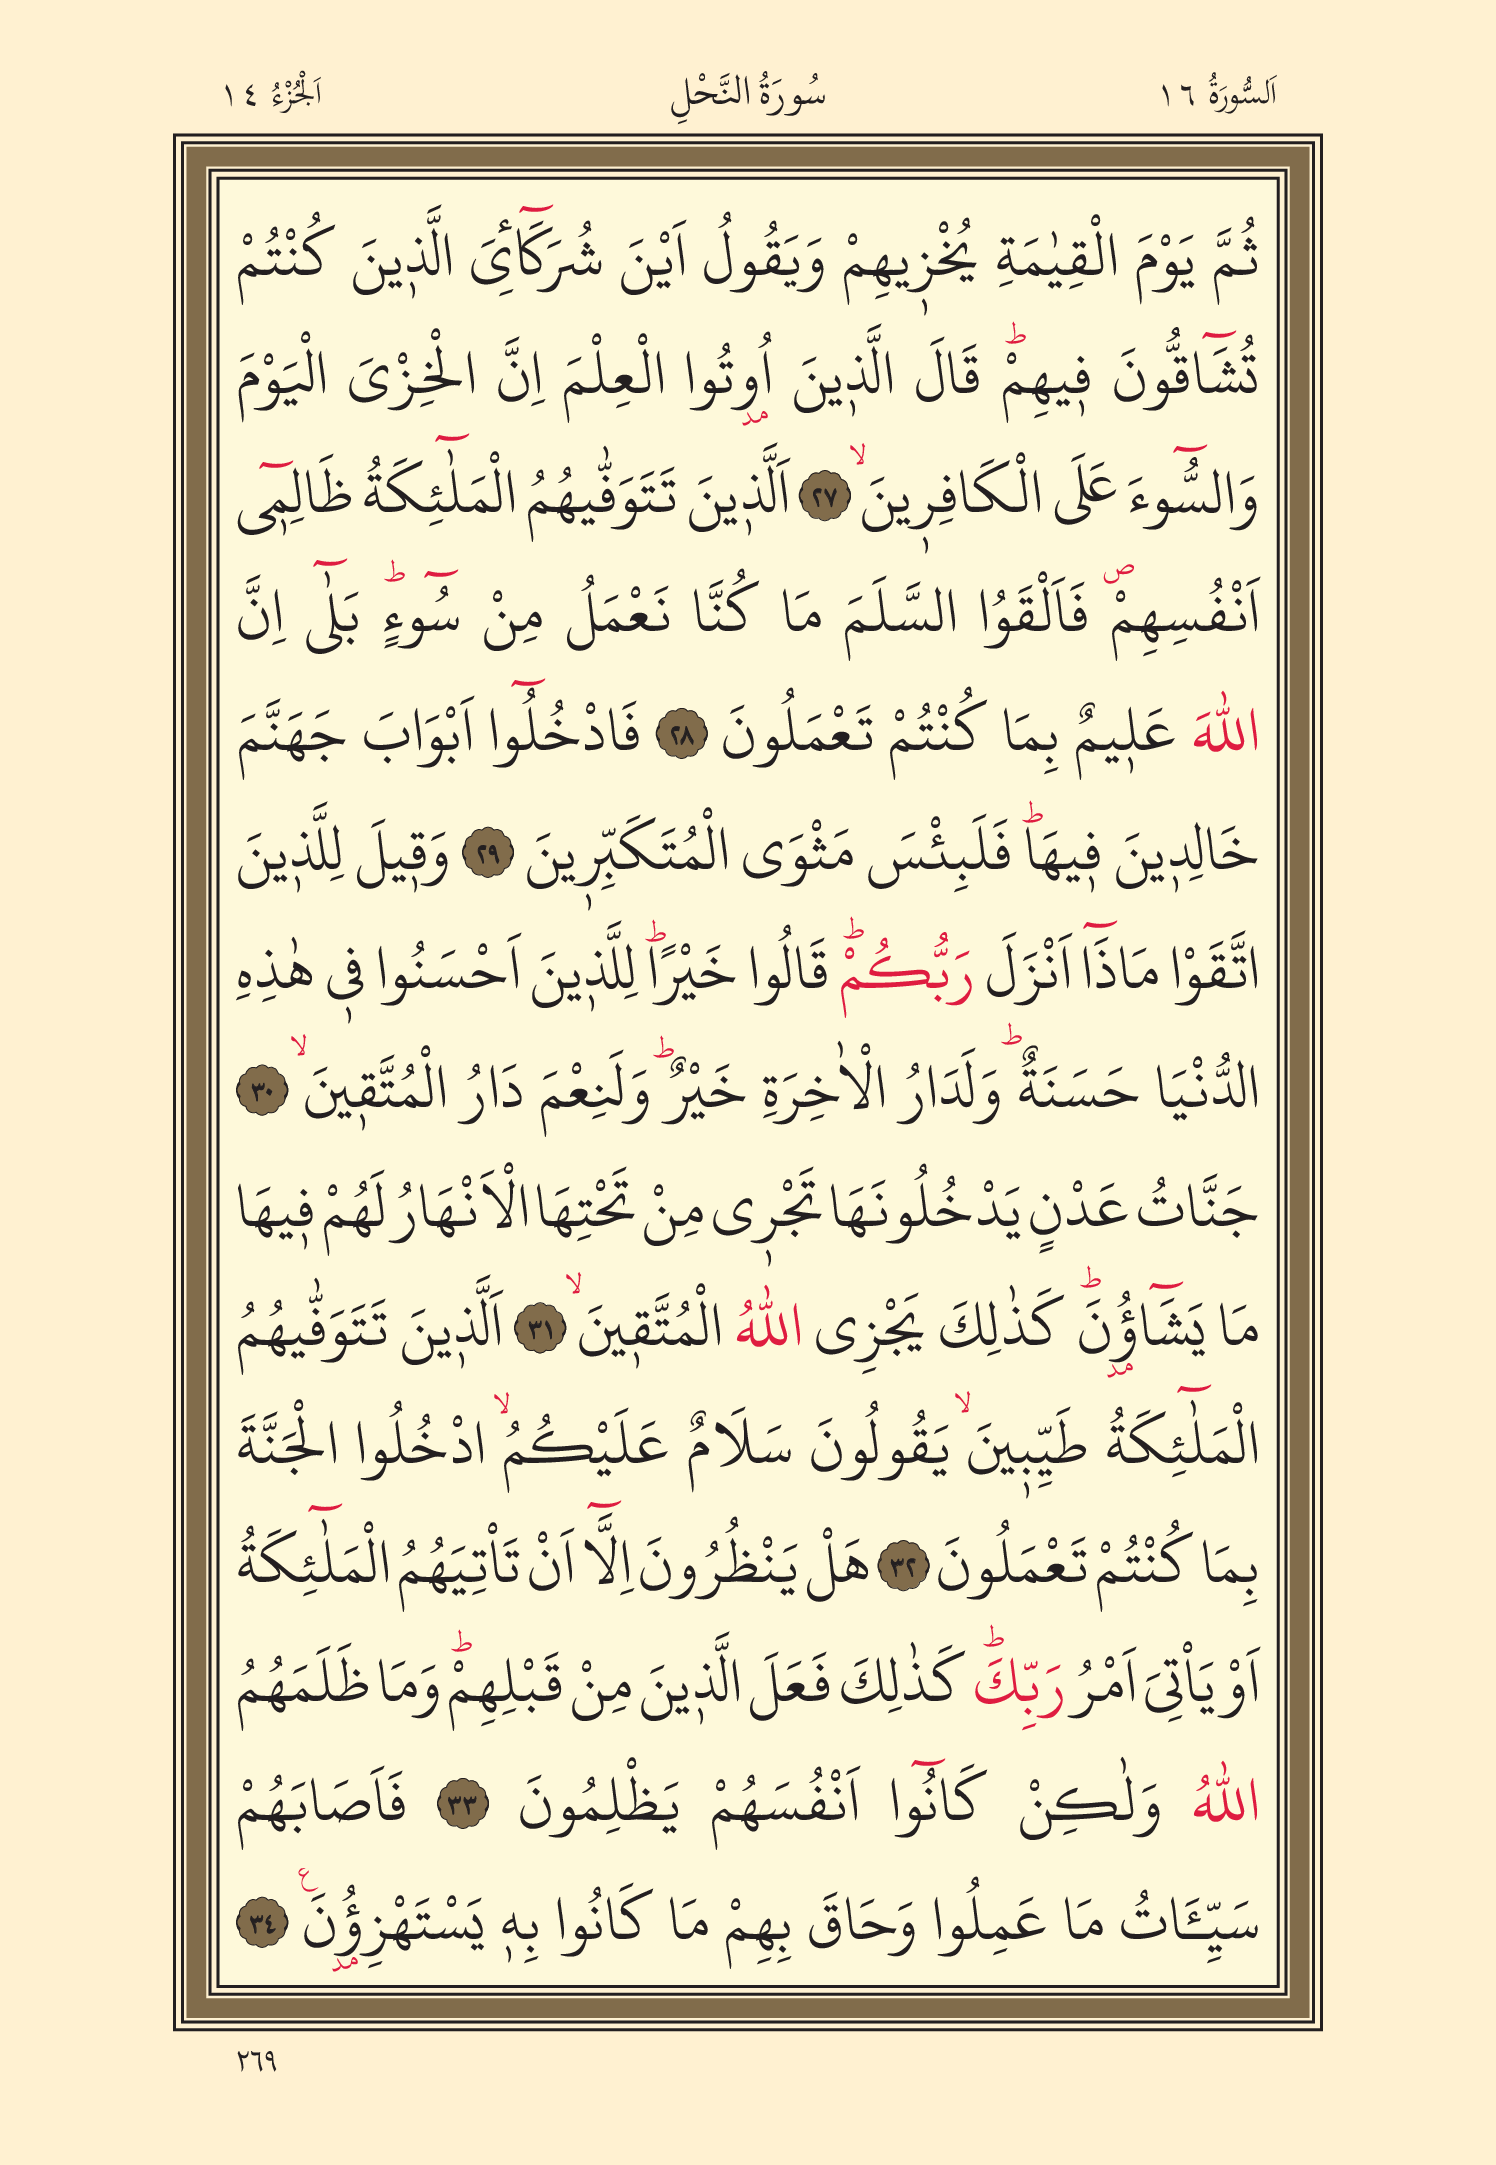 اَلسُّورَةُ ١٦ سُورَةُ النَّحْلِ اَلْجُزْءُ ١٤
ثُمَّ يَوْمَ الْقِيٰمَةِ يُخْزٖيهِمْ وَيَقُولُ اَيْنَ شُرَكَٓائِيَ الَّذٖينَ كُنْتُمْ
تُشَٓاقُّونَ فٖيهِمْؕ قَالَ الَّذٖينَ اُوتُوا الْعِلْمَ اِنَّ الْخِزْىَ الْيَوْمَ
وَالسُّٓوءَ عَلَى الْكَافِرٖينَۙ ﴿٢٧﴾ اَلَّذٖينَ تَتَوَفّٰيهُمُ الْمَلٰٓئِكَةُ ظَالِمٖٓى
اَنْفُسِهِمْࣕ فَاَلْقَوُا السَّلَمَ مَا كُنَّا نَعْمَلُ مِنْ سُٓوءٍؕ بَلٰٓى اِنَّ
اللّٰهَ عَلٖيمٌ بِمَا كُنْتُمْ تَعْمَلُونَ ﴿٢٨﴾ فَادْخُلُٓوا اَبْوَابَ جَهَنَّمَ
خَالِدٖينَ فٖيهَاؕ فَلَبِئْسَ مَثْوَى الْمُتَكَبِّرٖينَ ﴿٢٩﴾ وَقٖيلَ لِلَّذٖينَ
اتَّقَوْا مَاذَٓا اَنْزَلَ رَبُّكُمْؕ قَالُوا خَيْرًاؕ لِلَّذٖينَ اَحْسَنُوا فٖى هٰذِهِ
الدُّنْيَا حَسَنَةٌؕ وَلَدَارُ الْاٰخِرَةِ خَيْرٌؕ وَلَنِعْمَ دَارُ الْمُتَّقٖينَۙ ﴿٣٠﴾
جَنَّاتُ عَدْنٍ يَدْخُلُونَهَا تَجْرٖى مِنْ تَحْتِهَا الْاَنْهَارُ لَهُمْ فٖيهَا
مَا يَشَٓاؤُنَؕ كَذٰلِكَ يَجْزِى اللّٰهُ الْمُتَّقٖينَۙ ﴿٣١﴾ اَلَّذٖينَ تَتَوَفّٰيهُمُ
الْمَلٰٓئِكَةُ طَيِّبٖينَۙ يَقُولُونَ سَلَامٌ عَلَيْكُمُۙ ادْخُلُوا الْجَنَّةَ
بِمَا كُنْتُمْ تَعْمَلُونَ ﴿٣٢﴾ هَلْ يَنْظُرُونَ اِلَّٓا اَنْ تَاْتِيَهُمُ الْمَلٰٓئِكَةُ
اَوْ يَاْتِىَ اَمْرُ رَبِّكَؕ كَذٰلِكَ فَعَلَ الَّذٖينَ مِنْ قَبْلِهِمْؕ وَمَا ظَلَمَهُمُ
اللّٰهُ وَلٰكِنْ كَانُٓوا اَنْفُسَهُمْ يَظْلِمُونَ ﴿٣٣﴾ فَاَصَابَهُمْ
سَيِّـَٔاتُ مَا عَمِلُوا وَحَاقَ بِهِمْ مَا كَانُوا بِهٖ يَسْتَهْزِؤُنَࣖ ﴿٣٤﴾
٢٦٩